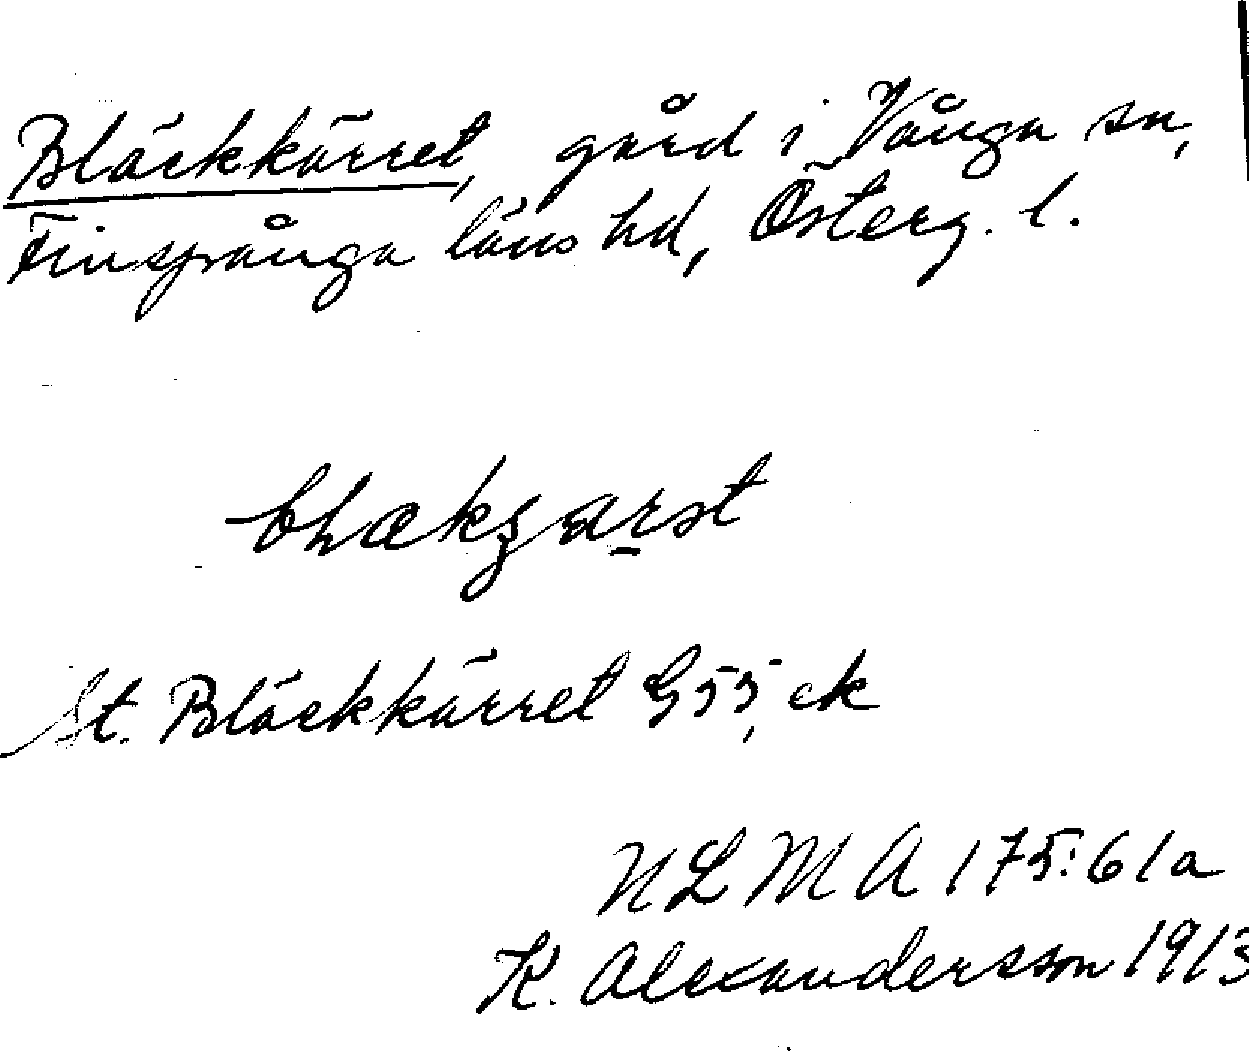 Bläckkärret, gård i Vånga sn,
Finspånga läns hd, Österg. l.
St. Bläckkärret G55, ek
NLM A 175:61a
K. Alexandersson 1913